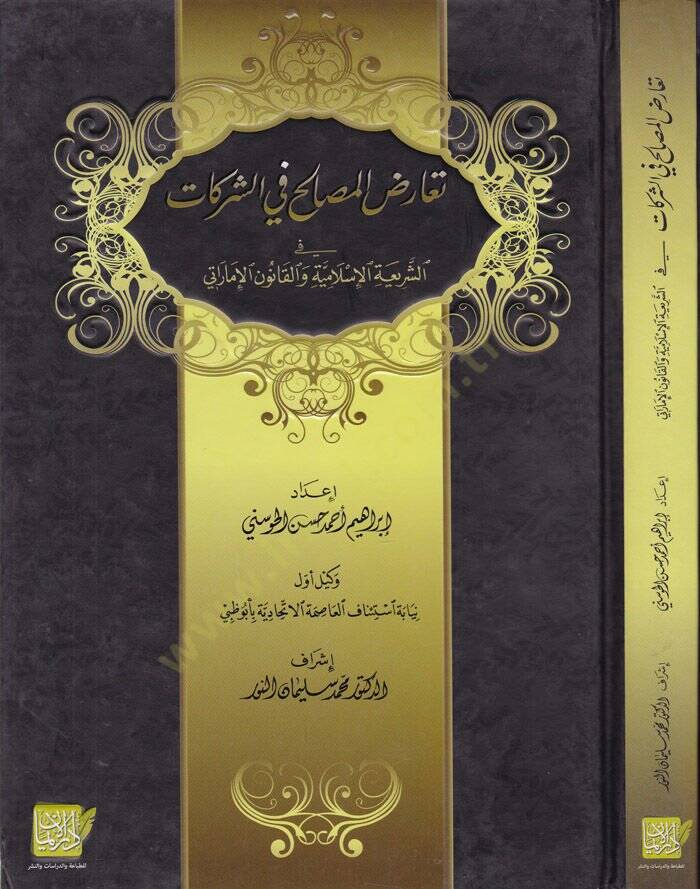 تعارض المصالح في الشركات
في
الشَّرِيعَةِ الإِسْلَامِيَّةِ وَالقَانُونِ الإِمَارَاتِي
إعداد
إبراهيم أحمد حسن الحوسني
وكيل أول
نيابة استئناف العاصمة الاتحادية بأبوظبي
إشراف
الدكتور محمد سليمان النور
دار الريان
للطباعة والدراسات والنشر
تعارض المصالح في الشركات
في
الشريعة الإسلامية والقانون الإماراتي
إعداد إبراهيم أحمد حسن الحوسني
إشراف الدكتور محمد سليمان النور
دار الريان
للطباعة والدراسات والنشر